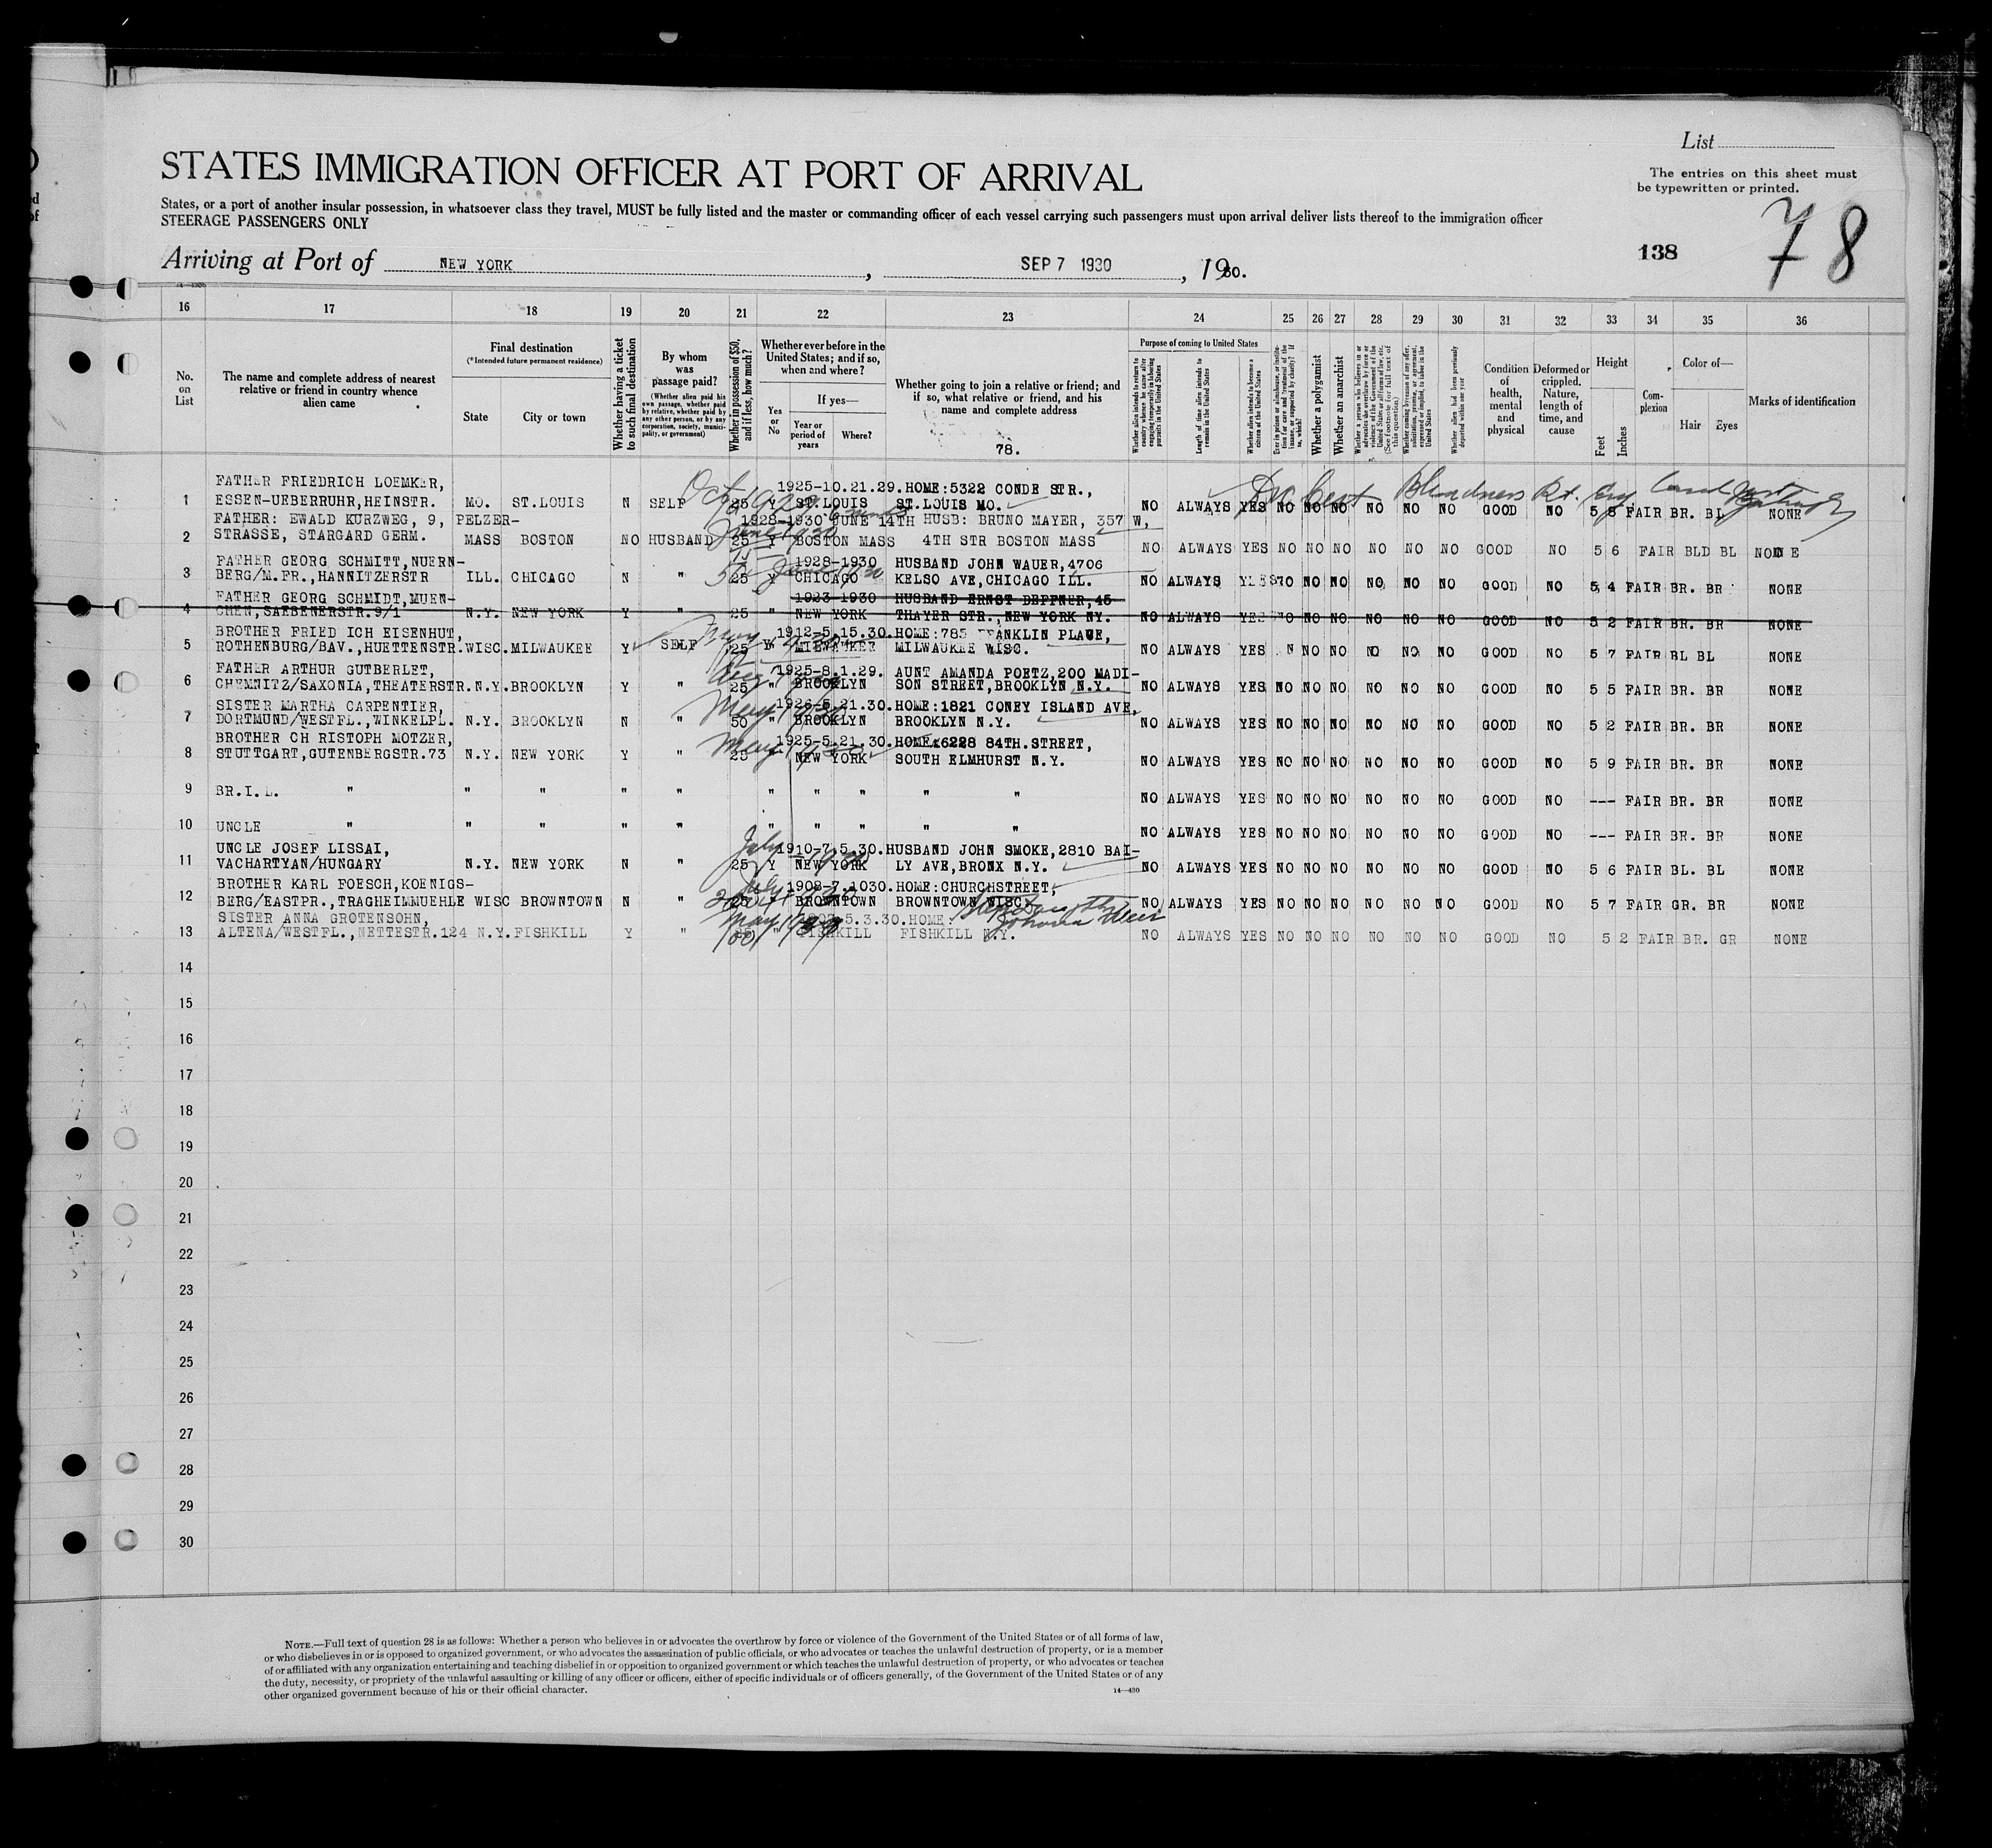 List
STATES IMMIGRATION OFFICER AT PORT OF ARRIVAL
The entries on this sheet must
be typewritten or printed.
States, or a port of another insular possession, in whatsoever class they travel, MUST be fully listed and the master or commanding officer of each vessel carrying such passengers must upon arrival deliver lists thereof to the immigration officer
STEERAGE PASSENGERS ONLY
138 78
Arriving at Port of NEW YORK, SEP 7 1930, 1930.
16 17 18 19 20 21 22 23 24 25 26 27 28 29 30 31 32 33 34 35 36
No. on List
The name and complete address of nearest relative or friend in country whence alien came
Final destination
(*Intended future permanent residence)
State City or town
Whether having a ticket to such final destination
By whom was passage paid?
(Whether alien paid his own passage, whether paid by relative, whether paid by any other person, or by any corporation, society, municipality, or government)
Whether in possession of $50, and if less, how much?
Whether ever before in the United States; and if so, when and where?
Yes or No
If yes—
Year or period of years
Where?
Whether going to join a relative or friend; and if so, what relative or friend, and his name and complete address
78.
Purpose of coming to United States
Whether alien intends to return to country whence he came after engaging temporarily in laboring pursuits in the United States
Length of time alien intends to remain in the United States
Whether alien intends to become a citizen of the United States
Whether a polygamist
Whether an anarchist
Whether alien had been previously deported within one year
Condition of health, mental and physical
Deformed or crippled. Nature, length of time, and cause
Height
Feet Inches
Complexion
Color of—
Hair Eyes
Marks of identification
FATHER FRIEDRICH LOEMKER, 1925-10.21.29. HOME:5322 CONDE STR.,
1 ESSEN-UEBERRUHR,HEINSTR. MO. ST.LOUIS N SELF 25 Y ST.LOUIS ST.LOUIS MO. NO ALWAYS YES NO NO NO NO NO NO GOOD NO 5 8 FAIR BR. BL NONE
FATHER: EWALD KURZWEG, 9, PELZER- 1928-1930 JUNE 14TH HUSB: BRUNO MAYER, 357 W,
2 STRASSE, STARGARD GERM. MASS BOSTON NO HUSBAND 25 Y BOSTON MASS 4TH STR BOSTON MASS NO ALWAYS YES NO NO NO NO NO NO GOOD NO 5 6 FAIR BLD BL NONE
FATHER GEORG SCHMITT,NUERN- 1928-1930 HUSBAND JOHN WAUER,4706
3 BERG/M.FR.,HANNITZERSTR ILL. CHICAGO N " 25 Y CHICAGO KELSO AVE,CHICAGO ILL. NO ALWAYS YES NO NO NO NO NO NO GOOD NO 5 4 FAIR BR. BR NONE
FATHER GEORG SCHMIDT,MUEN- 1923-1930 HUSBAND ERNST DEPPNER,45
4 CHEN,SAEBENERSTR.9/1 N.Y. NEW YORK Y " 25 " NEW YORK THAYER STR.,NEW YORK NY. NO ALWAYS YES NO NO NO NO NO NO GOOD NO 5 2 FAIR BR. BR NONE
BROTHER FRIED ICH EISENHUT, 1912-5.15.30. HOME:785 FRANKLIN PLACE,
5 ROTHENBURG/BAV.,HUETTENSTR. WISC. MILWAUKEE Y SELF 25 Y MILWAUKEE MILWAUKEE WISC. NO ALWAYS YES N NO NO NO NO NO GOOD NO 5 7 FAIR BL BL NONE
FATHER ARTHUR GUTBERLET, 1925-8.1.29. AUNT AMANDA POETZ,200 MADI-
6 CHEMNITZ/SAXONIA,THEATERSTR. N.Y. BROOKLYN Y " 25 " BROOKLYN SON STREET,BROOKLYN N.Y. NO ALWAYS YES NO NO NO NO NO NO GOOD NO 5 5 FAIR BR. BR NONE
SISTER MARTHA CARPENTIER, 1926-5.21.30. HOME:1821 CONEY ISLAND AVE,
7 DORTMUND/WESTFL.,WINKELPL. N.Y. BROOKLYN N " 50 " BROOKLYN BROOKLYN N.Y. NO ALWAYS YES NO NO NO NO NO NO GOOD NO 5 2 FAIR BR. BR NONE
BROTHER CH RISTOPH MOTZER, 1925-5.21.30. HOME:6228 84TH.STREET,
8 STUTTGART,GUTENBERGSTR.73 N.Y. NEW YORK Y " 25 " NEW YORK SOUTH ELMHURST N.Y. NO ALWAYS YES NO NO NO NO NO NO GOOD NO 5 9 FAIR BR. BR NONE
9 BR.I.L. " " " " " " " " " " NO ALWAYS YES NO NO NO NO NO NO GOOD NO --- FAIR BR. BR NONE
10 UNCLE " " " " " " " " " " NO ALWAYS YES NO NO NO NO NO NO GOOD NO --- FAIR BR. BR NONE
UNCLE JOSEF LISSAI, 1910-7.5.30. HUSBAND JOHN SMOKE,2810 BAI-
11 VACHARTYAN/HUNGARY N.Y. NEW YORK N " 25 Y NEW YORK LY AVE,BRONX N.Y. NO ALWAYS YES NO NO NO NO NO NO GOOD NO 5 6 FAIR BL. BL NONE
BROTHER KARL FOESCH,KOENIGS- 1908-7.1030. HOME:CHURCHSTREET,
12 BERG/EASTPR.,TRAGHEILMUEHLE WISC BROWNTOWN N " 25 " BROWNTOWN BROWNTOWN WISC. NO ALWAYS YES NO NO NO NO NO NO GOOD NO 5 7 FAIR GR. BR NONE
SISTER ANNA GROTENSOHN, 5.3.30. HOME:
13 ALTENA/WESTFL.,NETTESTR.124 N.Y. FISHKILL Y " " FISHKILL FISHKILL N.Y. NO ALWAYS YES NO NO NO NO NO NO GOOD NO 5 2 FAIR BR. GR NONE
14
15
16
17
18
19
20
21
22
23
24
25
26
27
28
29
30
NOTE.—Full text of question 28 is as follows: Whether a person who believes in or advocates the overthrow by force or violence of the Government of the United States or of all forms of law,
or who disbelieves in or is opposed to organized government, or who advocates the assassination of public officials, or who advocates or teaches the unlawful destruction of property, or is a member
of or affiliated with any organization entertaining and teaching disbelief in or opposition to organized government or which teaches the unlawful destruction of property, or who advocates or teaches
the duty, necessity, or propriety of the unlawful assaulting or killing of any officer or officers, either of specific individuals or of officers generally, of the Government of the United States or of any
other organized government because of his or their official character.
14—430